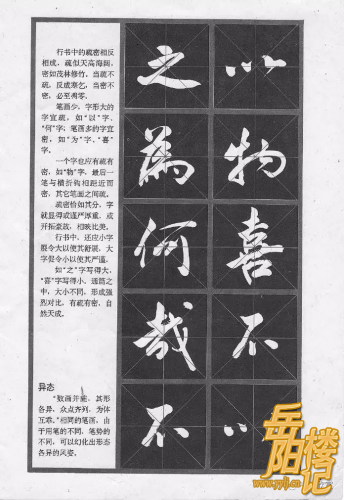 行书中的疏密相反
相成，疏似天高海阔，
密如茂林修竹。当疏不
疏，反成寒乞，当密不
密，必至凋零。
笔画少、字形大的
字宜疏，如“以”字、
“何”字；笔画多的字宜
密，如“为”字、“喜”
字。
一个字也应有疏有
密，如“物”字，最后一
笔与横折钩相距近而
密，其它笔画之间疏。
疏密恰如其分，字
就显得或谨严厚重，或
开拓豪放，相映比美。
行书中，还应小字
展令大以使其舒展，大
字促令小以使其严谨。
如“之”字写得大，
“喜”字写得小。通篇之
中，大小不同，形成强
烈对比，有疏有密，自
然天成。
异态
“数画并施，其形
各异，众点齐列，为体
互乖。”相同的笔画，由
于用笔的不同、笔势的
不同，可以幻化出形态
各异的风姿。
以物喜不以
之為何哉不
岳阳楼记